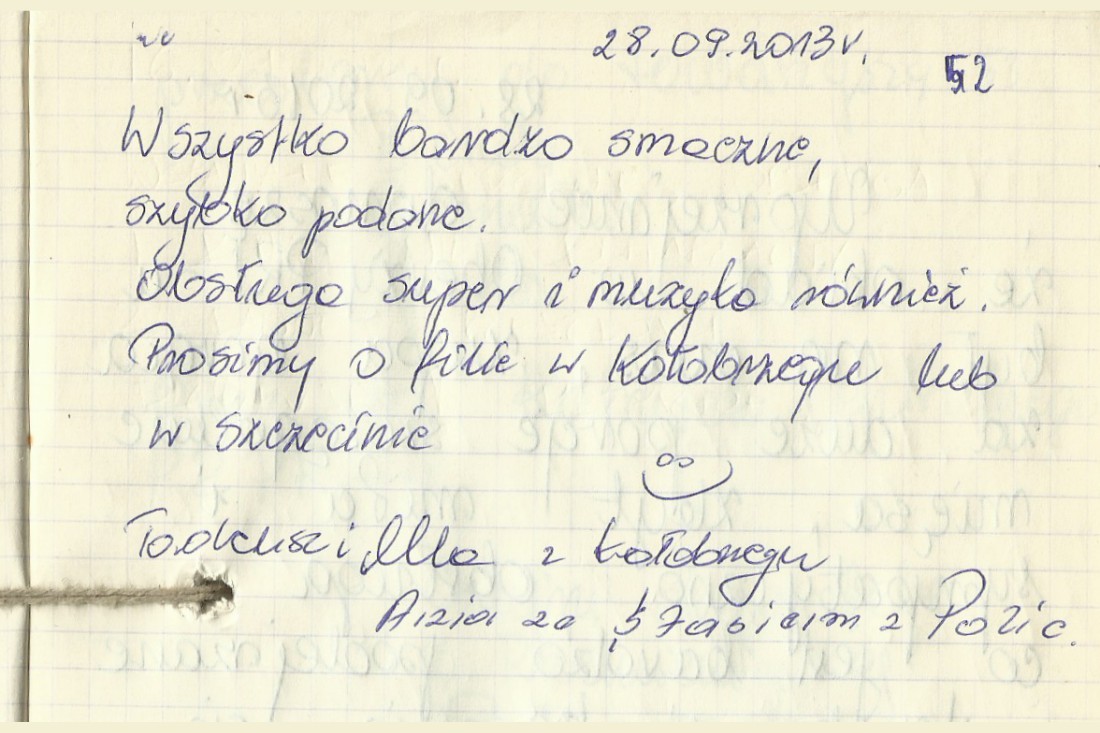 28.09.2013r.
52
Wszystko bardzo smaczne,
szybko podane.
Obsługa super i muzyka również.
Prosimy o filie w Kołobrzegu lub
w Szczecinie
Tadeusz i z Kołobrzegu
z Polic.